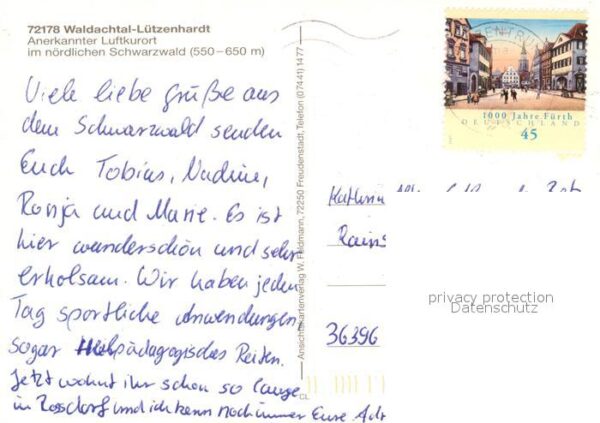 72178 Waldachtal-Lützenhardt
Anerkannter Luftkurort
im nördlichen Schwarzwald (550–650 m)
Viele liebe Grüße aus
dem Schwarzwald senden
Euch Tobias, Nadine,
Ronja und Marie. Es ist
hier wunderschön und sehr
erholsam. Wir haben jeden
Tag sportliche Anwendungen,
sogar Heilpädagogisches Reiten.
Jetzt wohnt ihr schon so lange
in Rosdorf und ich kenn noch immer Eure
Ansichtskartenverlag W. Feldmann, 72250 Freudenstadt, Telefon (07441) 1477
CL
1000 Jahre Fürth
DEUTSCHLAND
45
BRIEFZENTRUM
36396
privacy protection
Datenschutz